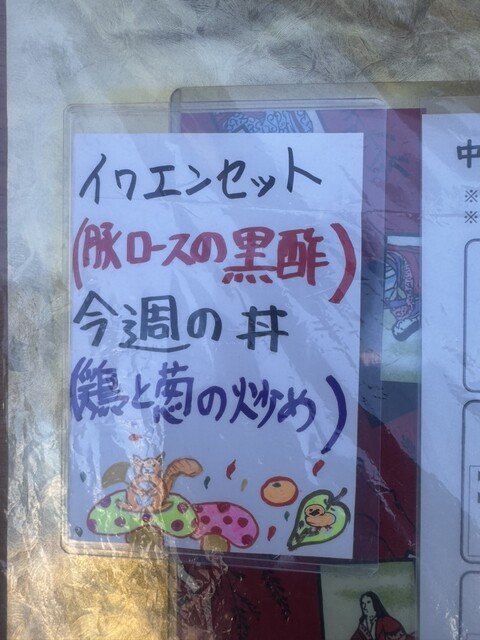 イワエンセット
(豚ロースの黒酢)
今週の丼
(鶏と筍の炒め)
中
※
※